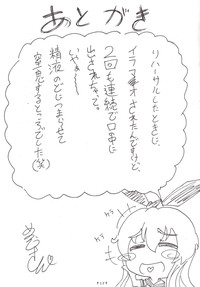 あとがき
リハーサルしたときに、
イラマ
されたんですけど、
2回も連続で口中に
出されちゃって、
いやぁ〜
精液のどにつまらせて
窒息するところでした(笑)
ケラ
ケラ